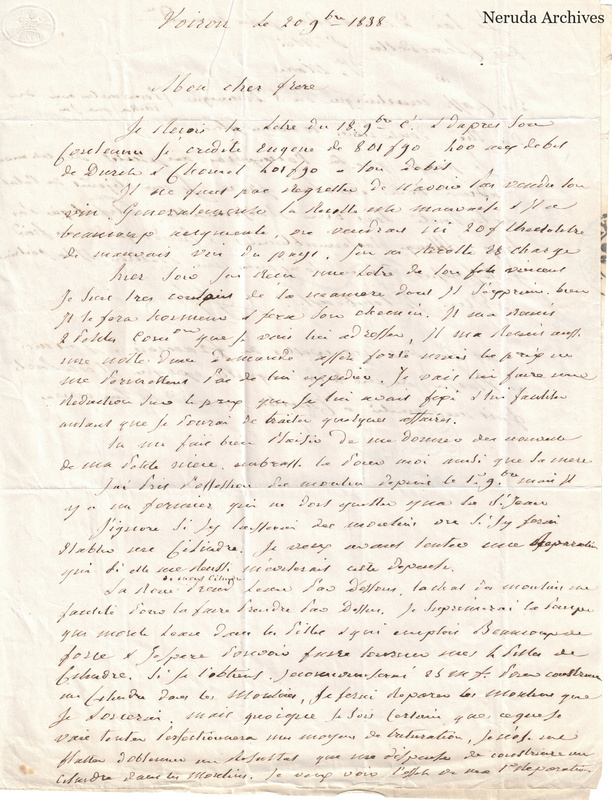 Neruda Archives
Voiron le 20 9bre 1838
Mon cher frere
Je reçois ta letre du 18 9bre Ct & d'apres son
contenu je crédite Eugene de 801 f 90 400 au debit
de & 401 f 90 a ton debit
Il ne faut pas regretter de n'avoir pas vendu ton
vin. Generalement la Recolte est mauvaise & Il a
beaucoup on vendrait ici 20 f l'hectolitre
de mauvais vin du pays. J'en ai Recolté 28 charge
hier soir j'ai Recu une letre de ton fils vincent
Je suis tres content de la maniere dont Il s'exprime bien
Il te fera honneur & fera son chemin. Il m'a remis
2 petites Comons que je vais lui adresser, Il m'a Remis aussi
une notte d'une demande assez forte mais les prix ne
me permettent pas de lui expedier. Je vais lui faire une
Reduction sur le prix que je lui avais fixé & lui faciliter
autant que je pourai de traiter quelques affaires.
Tu me fais bien plaisir de me donner des nouvelles
de ma petite niece. embrasse la pour moi ainsi que sa mere
J'ai pris possession du moulin depuis le 1er 9bre mais Il
y a un fermier qui ne doit quitter qu'a la St Jean
J'ignore si j'y laisserai des moulins ou si j'y ferai
établir une Cilindre. Je veux avant tenter une Reparation
qui si elle me Reussit m'éviterait cette depense.
de mon Cilindre
La Roue prend l'eau par Dessous, l'achat du moulin me
facilite pour la faire prendre par Dessus. Je suprimerai la pompe
qui monte l'eau dans les Piles & qui emploie Beaucoup de
force & J'espere pouvoir faire tourner mes Piles de
Cilindre. Si je l'obtiens, j'economiserai 25 m f. pour construire
un Cilindre dans les Moulins, je ferai reparer les moulins que
Je mais quoique je sois Certain que ce que je
vais tenter perfectionnera mes moyens de trituration, je n'ose me
flatter d'obtenir un Resultat qui me dispense de construire un
cilindre dans les Moulins. Je veux voir l'effet de ma 1re Reparation